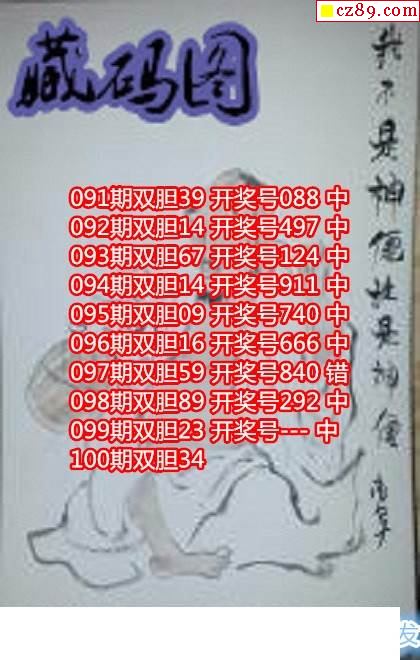 cz89.com
藏码图
我不是神但就是神仙
091期双胆39 开奖号088 中
092期双胆14 开奖号497 中
093期双胆67 开奖号124 中
094期双胆14 开奖号911 中
095期双胆09 开奖号740 中
096期双胆16 开奖号666 中
097期双胆59 开奖号840 错
098期双胆89 开奖号292 中
099期双胆23 开奖号--- 中
100期双胆34
发